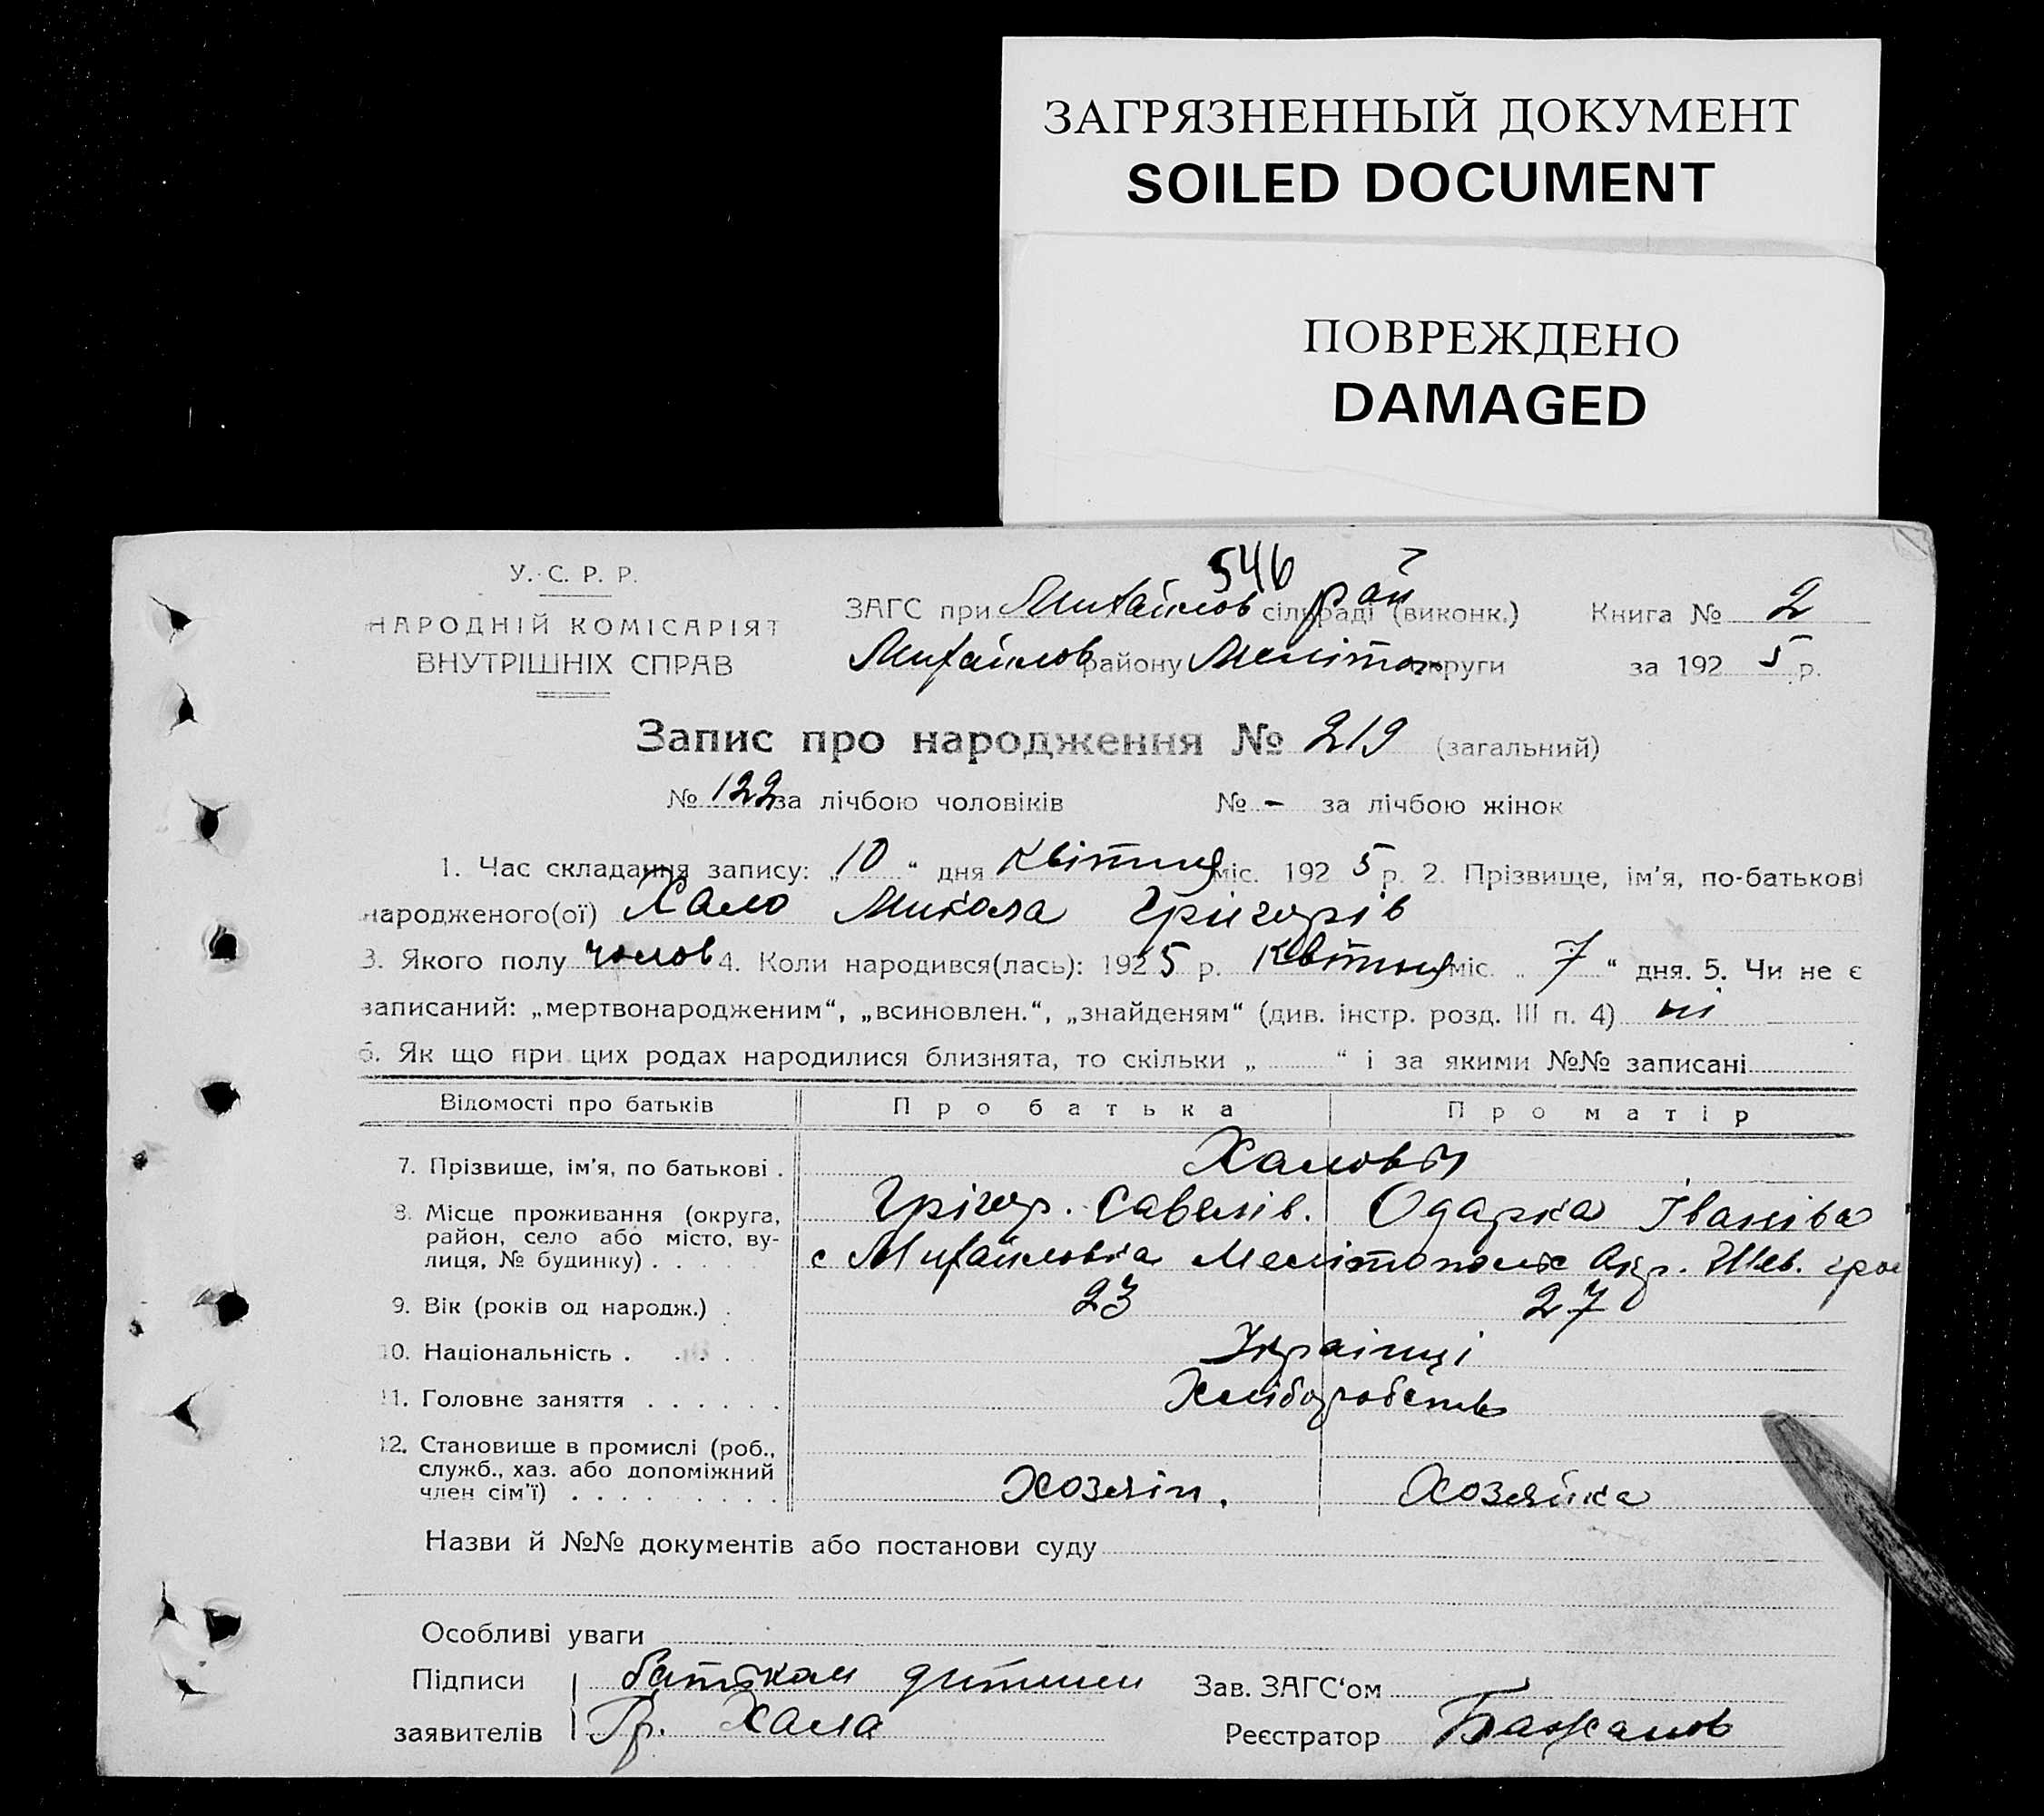 ЗАГРЯЗНЕННЫЙ ДОКУМЕНТ
SOILED DOCUMENT
ПОВРЕЖДЕНО
DAMAGED
546
У. С. Р. Р.
НАРОДНІЙ КОМІСАРІЯТ
ВНУТРІШНІХ СПРАВ
ЗАГС при Михайлов сільраді рай (виконк.) Книга № 2
Михайлов району Меліток округи за 192 5 р.
Запис про народження № 219 (загальний)
№ 122 за лічбою чоловіків № - за лічбою жінок
1. Час складання запису: „10“ дня Квітня міс. 192 5 р. 2. Прізвище, ім'я, по-батькові
народженого(ої) Хало Микола Грігорів
3. Якого полу чолов 4. Коли народився(лась): 192 5 р. Квітня міс. „7“ дня. 5. Чи не є
записаний: „мертвонародженим“, „всиновлен.“, „знайденям“ (див. інстр. розд. III п. 4) ні
6. Як що при цих родах народилися близнята, то скільки „ “ і за якими №№ записані
Відомості про батьків Про батька Про матір
7. Прізвище, ім'я, по батькові . Халови
Грігор. Савелів. Одарка Іванівна
8. Місце проживання (округа, район, село або місто, вулиця, № будинку) . . . . с Михайловка Мелітопольс Окр. Шев.
9. Вік (років од народж.) . 23 27
10. Національність . . . . Українці
11. Головне заняття . . . . . . Хліборобств
12. Становище в промислі (роб.,
служб., хаз. або допоміжний
член сім'ї) . . . . . . . . . Хозяін. Хозяйка
Назви й №№ документів або постанови суду
Особливі уваги
Підписи батьком дитини Зав. ЗАГС'ом
заявителів Гр. Хала Реєстратор Бажанов